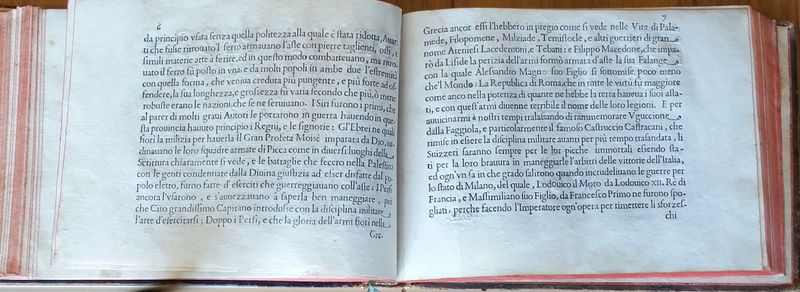 6
da principio vsata senza quella politezza alla quale è stata ridotta, Auan
ti che fusse ritrouato il ferro armauano l'aste con pietre taglienti, ossi, e
simili materie atte à ferire, ed in questo modo combatteuano, ma ritro
uato il ferro fù posto in vna, e da molti popoli in ambe due l'estremità
con quella forma, che veniua creduta più pungente, e più forte ad of=
fendere, la sua longhezza, e grossezza fù varia secondo che più ò meno
robuste erano le nazioni, che se ne seruiuano. I Siri furono i primi, che
al parer di molti graui Autori le portarono in guerra hauendo in que
sta prouincia hauuto principio i Regni, e le signorie: Gl'Ebrei ne quali
fiorì la milizia per hauerla il Gran Profeta Moisè imparata da Dio, or
dinauano le loro squadre armate di Picca come in diuersi luoghi della
Scrittura chiaramente si vede, e le battaglie che fecero nella Palestina
con le genti condennate dalla Diuina giustizia ad esser disfatte dal po
polo eletto, furno fatte d'eserciti che guerreggiauano coll'aste, i Persi
ancora l'vsarono, e s'auuezzauano à saperla ben maneggiare, per
che Ciro grandissimo Capitano introdusse con la disciplina militare
l'arte d'esercitarsi; Doppo i Persi, e che la gloria dell'armi fiorì nella
Gre-
7
Grecia ancor essi l'hebbero in pregio come si vede nelle Vite di Pala-
mede, Filopomene, Milziade, Temistocle, e altri guerrieri di gran
nome Ateniesi Lacedemoni, e Tebani: e Filippo Macedone, che impa,
rò da Liside la perizia dell'armi formò armata d'aste la sua Falange
con la quale Alessandro Magno suo Figlio si sottomise poco meno
che'l Mondo: La Republica di Roma, che in tutte le virtù fù maggiore
come anco nella potenza di quante ne hebbe la terra haueua i suoi asta-
ti, e con quest'armi diuenne terribile il nome delle loro legioni. E per
auuicinarmi à nostri tempi tralasando di rammemorare Vguccione
dalla Faggiola, e particolarmente il famoso Castruccio Castracani, che
rimise in essere la disciplina militare auanti per più tempo trasandata, li
Suizzeri saranno sempre per le lor picche immortali essendo sta-
ti per la loro brauura in maneggiarle l'arbitri delle vittorie dell'Italia,
ed ogn'vn sa in che grado salirono quando incrudeliuano le guerre per
lo stato di Milano, del quale, Lodouico il Moro da Lodouico XII. Rè di
Francia, e Massimiliano suo Figlio, da Francesco Primo ne furono spo-
gliati, perche facendo l'Imperatore ogn'opera per rimettere li sforzes-
chi